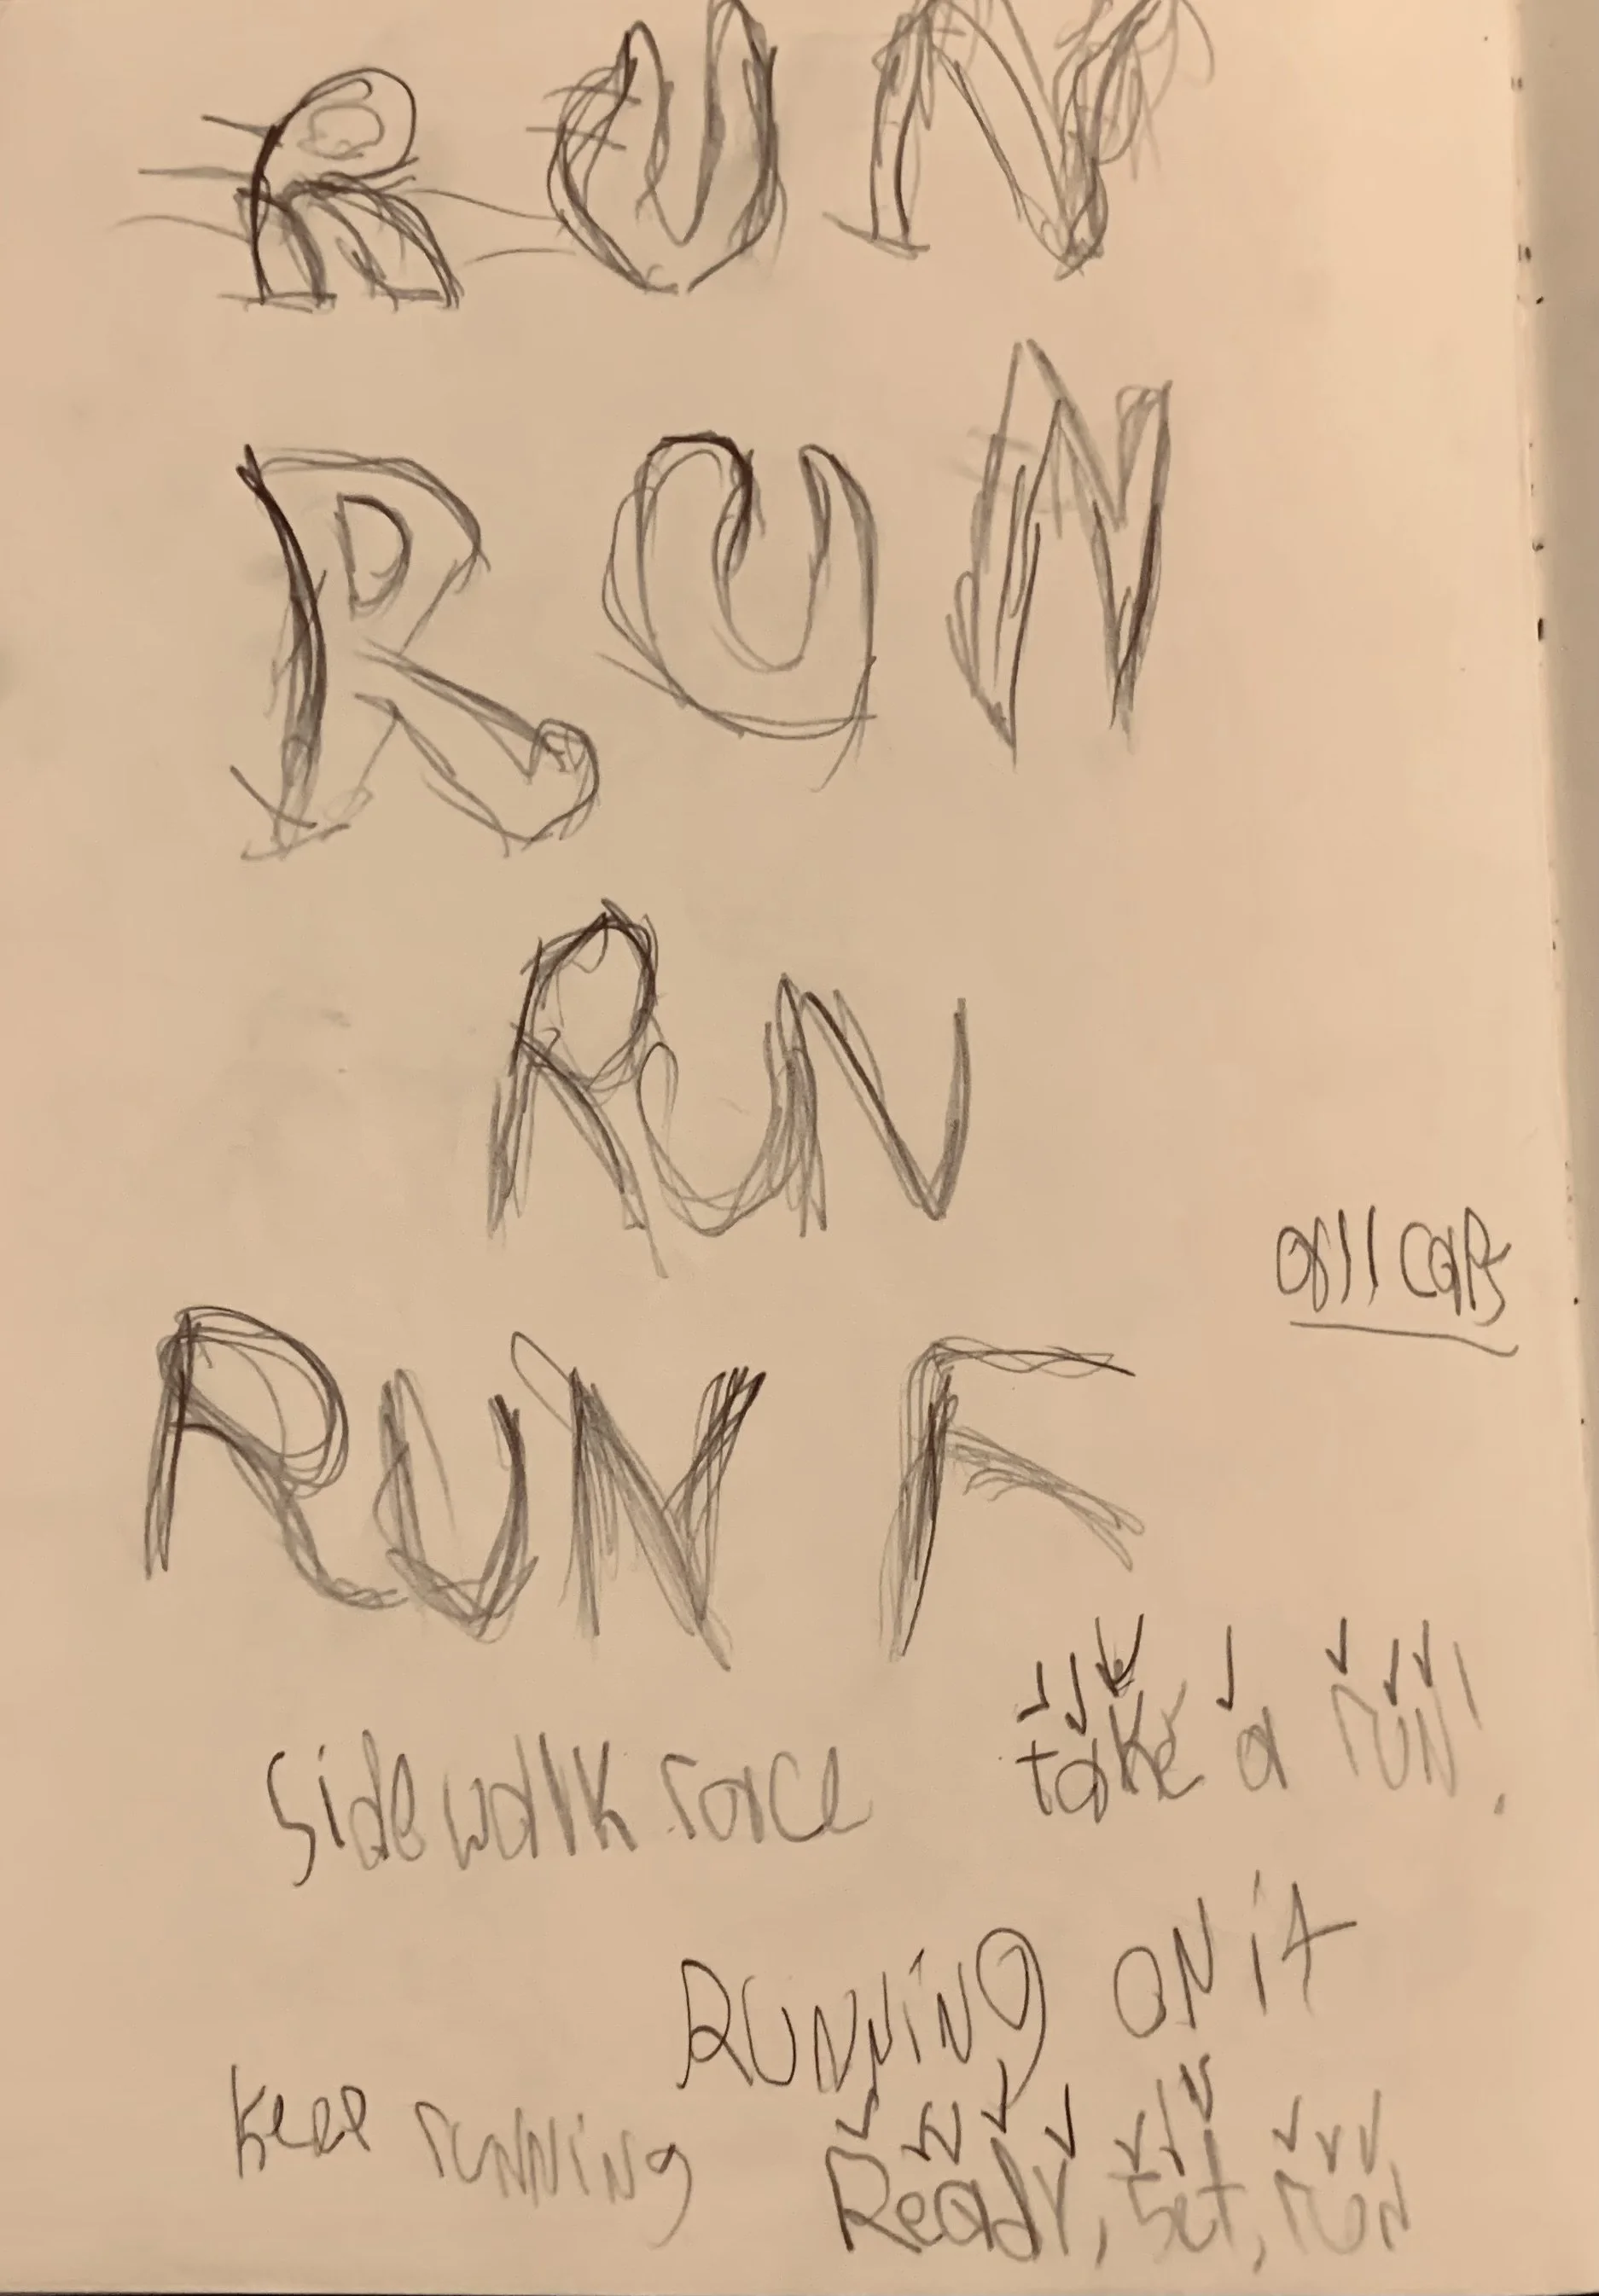 RUN
RUN
RUN
all caps
RUN F
take a run!
Sidewalk race
RUNNiNg ON it
Keep ruNNiNg
Ready, Set, run